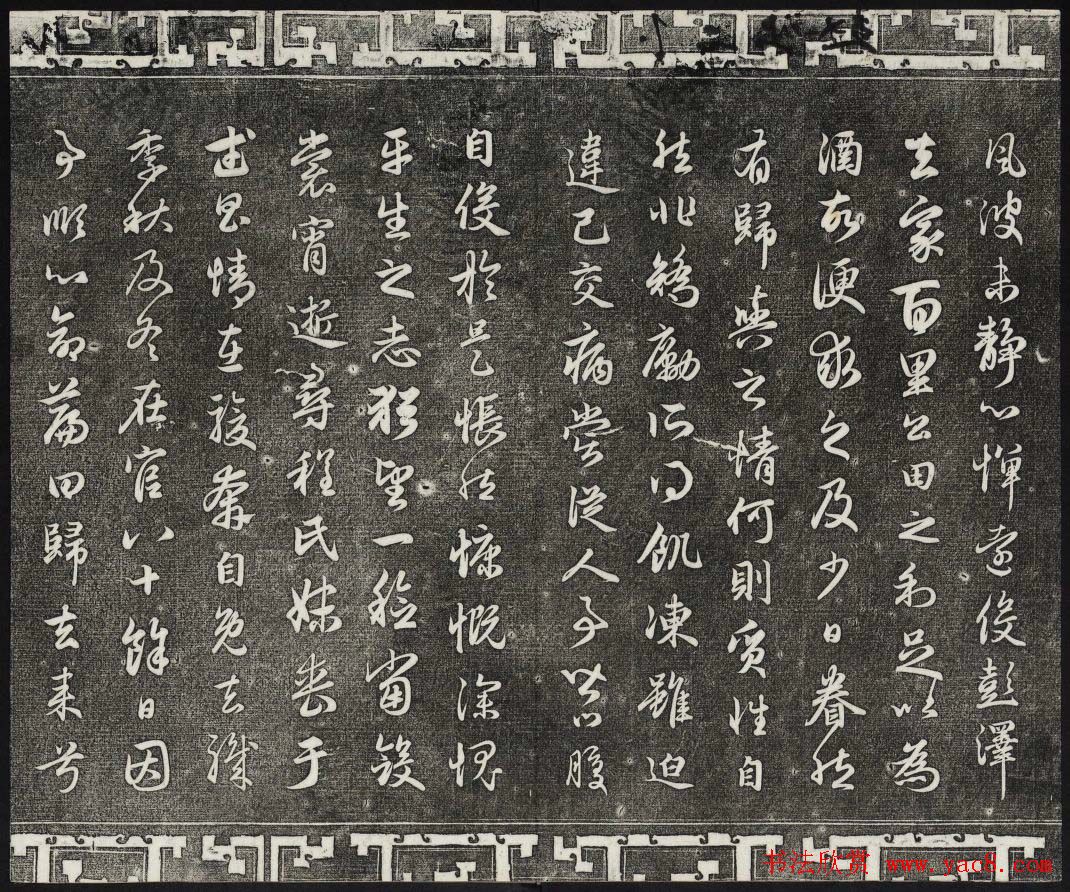 風波未静心憚遠役彭澤
去家百里公田之利足以為
酒故便求之及少日眷然
有歸與之情何則質性自
然非矯勵所得飢凍雖迫
違己交病嘗從人事皆口腹
自役於是悵然慷慨深愧
平生之志猶望一稔當斂
裳宵逝尋程氏妹喪于
武昌情在駿奔自免去職
季秋及冬在官八十餘日因
事順心命篇曰歸去来兮
书法欣赏 www.yac8.com